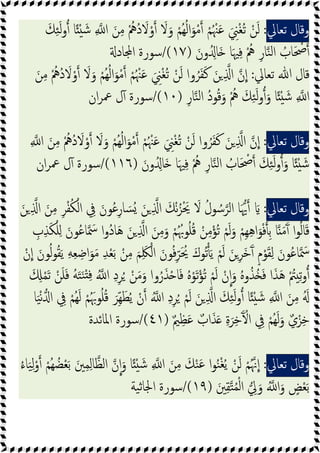 وقال تعالي: لَنْ تُغْنِيَ عَنْهُمْ أَمْوَالُهُمْ وَلَا أَوْلَادُهُمْ مِنَ اللَّهِ شَيْئًا أُولَئِكَ
أَصْحَابُ النَّارِ هُمْ فِيهَا خَالِدُونَ (١٧)/سورة المجادلة
قال الله تعالي: إِنَّ الَّذِينَ كَفَرُوا لَنْ تُغْنِيَ عَنْهُمْ أَمْوَالُهُمْ وَلَا أَوْلَادُهُمْ مِنَ
اللَّهِ شَيْئًا وَأُولَئِكَ هُمْ وَقُودُ النَّارِ (١٠)/سورة آل عمران
وقال تعالي: إِنَّ الَّذِينَ كَفَرُوا لَنْ تُغْنِيَ عَنْهُمْ أَمْوَالُهُمْ وَلَا أَوْلَادُهُمْ مِنَ اللَّهِ
شَيْئًا وَأُولَئِكَ أَصْحَابُ النَّارِ هُمْ فِيهَا خَالِدُونَ (١١٦)/سورة آل عمران
وقال تعالي: يَا أَيُّهَا الرَّسُولُ لَا يَحْزُنْكَ الَّذِينَ يُسَارِعُونَ فِي الْكُفْرِ مِنَ الَّذِينَ
قَالُوا آمَنَّا بِأَفْوَاهِهِمْ وَلَمْ تُؤْمِنْ قُلُوبُهُمْ وَمِنَ الَّذِينَ هَادُوا سَمَّاعُونَ لِلْكَذِبِ
سَمَّاعُونَ لِقَوْمٍ آخَرِينَ لَمْ يَأْتُوكَ يُحَرِّفُونَ الْكَلِمَ مِنْ بَعْدِ مَوَاضِعِهِ يَقُولُونَ إِنْ
أُوتِيتُمْ هَذَا فَخُذُوهُ وَإِنْ لَمْ تُؤْتَوْهُ فَاحْذَرُوا وَمَنْ يُرِدِ اللَّهُ فِتْنَتَهُ فَلَنْ تَمْلِكَ
لَهُ مِنَ اللَّهِ شَيْئًا أُولَئِكَ الَّذِينَ لَمْ يُرِدِ اللَّهُ أَنْ يُطَهِّرَ قُلُوبَهُمْ لَهُمْ فِي الدُّنْيَا
خِزْيٌ وَلَهُمْ فِي الْآخِرَةِ عَذَابٌ عَظِيمٌ (٤١)/سورة المائدة
وقال تعالي: إِنَّهُمْ لَنْ يُغْنُوا عَنْكَ مِنَ اللَّهِ شَيْئًا وَإِنَّ الظَّالِمِينَ بَعْضُهُمْ أَوْلِيَاءُ
بَعْضٍ وَاللَّهُ وَلِيُّ الْمُتَّقِينَ (١٩)/سورة الجاثية